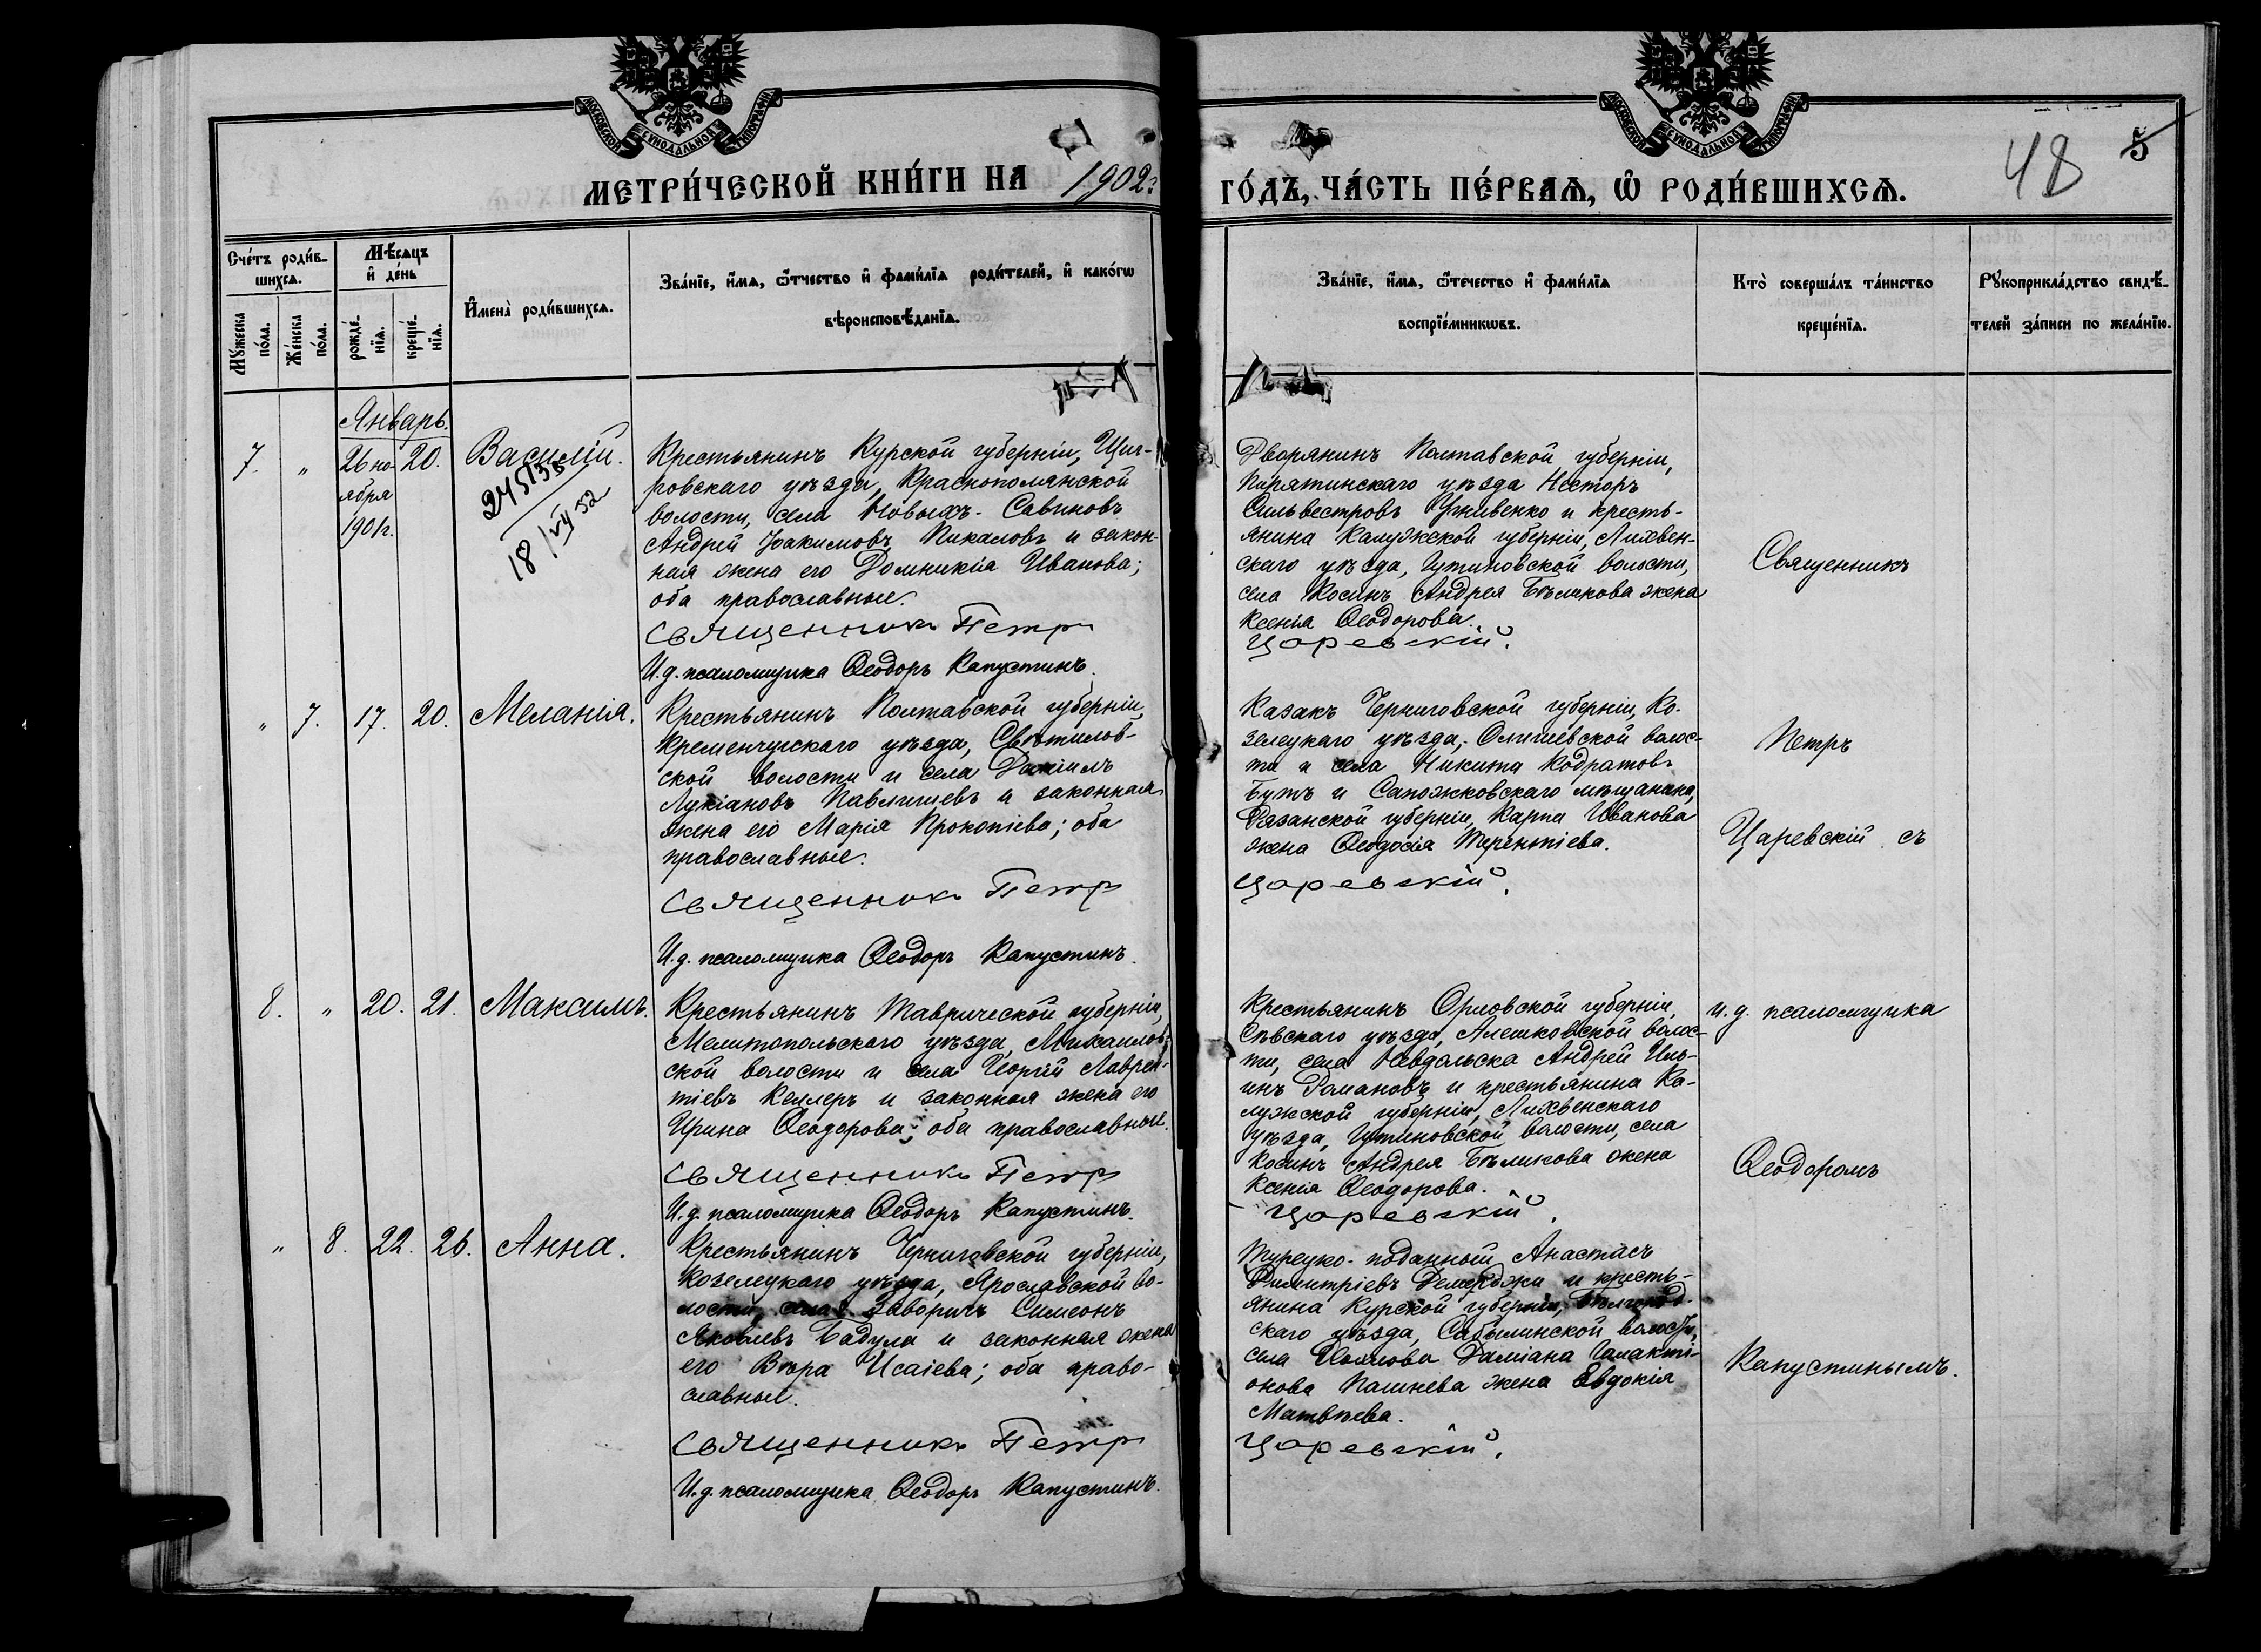 МОСКОВСКОЙ СѴНОДАЛЬНОЙ ТИПОГРАФІИ
МОСКОВСКОЙ СѴНОДАЛЬНОЙ ТИПОГРАФІИ
48 5
МЕТРИ́ЧЕСКОЙ КНИ́ГИ НА 1902 г. ГО́ДЪ, ЧА́СТЬ ПЕ́РВАѦ, Ѡ҆ РОДИ́ВШИХСѦ.
Сче́тъ роди́в-
шихсѧ.
Мѹ́жеска по́ла.
Же́нска по́ла.
Мѣ́сяцъ
и҆ де́нь
рожде́-
нїѧ.
креще́-
нїѧ.
И҆мена̀ роди́вшихсѧ.
Зва́нїе, и҆́мѧ, ѻ҆́тчество и҆ фами́лїѧ роди́телей, и҆ како́гѡ
вѣроисповѣ́данїѧ.
Зва́нїе, и҆́мѧ, ѻ҆те́чество и҆ фами́лїѧ
воспрїе́мникѡвъ.
Кто̀ соверша́лъ та́инство
креще́нїѧ.
Рꙋкоприкла́дство свидѣ́-
телей за́писи по жела́нїю.
Январь.
7. " 26 но- 20. Василій.
ября
1901 г.
245135
18/VII 52
Крестьянинъ Курской губерніи, Щиг-
ровскаго уѣзда, Краснополянской
волости, села Новыхъ-Савиновъ
Андрей Іоакимовъ Пикаловъ и закон-
ная жена его Домникія Иванова;
оба православные.
Священникъ Петръ
И. д. псаломщика Ѳеодоръ Капустинъ.
Дворянинъ Полтавской губерніи,
Пирятинскаго уѣзда Несторъ
Сильвестровъ Угнивенко и кресть-
янина Калужской губерніи, Лихвен-
скаго уѣзда, Гутиновской волости,
села Косинъ Андрея Бѣликова жена
Ксенія Ѳеодорова.
Царевскій.
Священникъ
" 7. 17. 20. Меланія.
Крестьянинъ Полтавской губерніи,
Кременчугскаго уѣзда, Свѣтилов-
ской волости и села Даніилъ
Лукіановъ Павлишевъ и законная
жена его Марія Прокопіева; оба
православные.
Священникъ Петръ
И. д. псаломщика Ѳеодоръ Капустинъ.
Казакъ Черниговской губерніи, Ко-
зелецкаго уѣзда, Олишевской волос-
ти и села Никита Кодратовъ
Бутъ и Сапожковскаго мѣщанина,
Рязанской губерніи, Карпа Иванова
жена Ѳеодосія Терентіева.
Царевскій.
Петръ
Царевскій съ
8. " 20. 21. Максимъ.
Крестьянинъ Таврической губерніи,
Мелитопольскаго уѣзда, Михайлов-
ской волости и села Георгій Лаврен-
тіевъ Келлеръ и законная жена его
Ирина Ѳеодорова; оба православные.
Священникъ Петръ
И. д. псаломщика Ѳеодоръ Капустинъ.
Крестьянинъ Орловской губерніи,
Сѣвскаго уѣзда, Алешковской волос-
ти, села Невдольска Андрей Иль-
инъ Романовъ и крестьянина Ка-
лужской губерніи, Лихвенскаго
уѣзда, Гутиновской волости, села
Косинъ Андрея Бѣликова жена
Ксенія Ѳеодорова.
Царевскій.
и. д. псаломщика
Ѳеодоромъ
" 8. 22. 26. Анна.
Крестьянинъ Черниговской губерніи,
Козелецкаго уѣзда, Ярославской во-
лости, села Заворичъ Симеонъ
Яковлевъ Бадула и законная жена
его Вѣра Исаіева; оба право-
славные.
Священникъ Петръ
И. д. псаломщика Ѳеодоръ Капустинъ.
Турецко-поданный Анастасъ
Димитріевъ Демерджи и кресть-
янина Курской губерніи, Бѣлгород-
скаго уѣзда, Сабынинской волости,
села Даміана Галакті-
онова Пашнева жена Евдокія
Матвѣева.
Царевскій.
Капустинымъ.